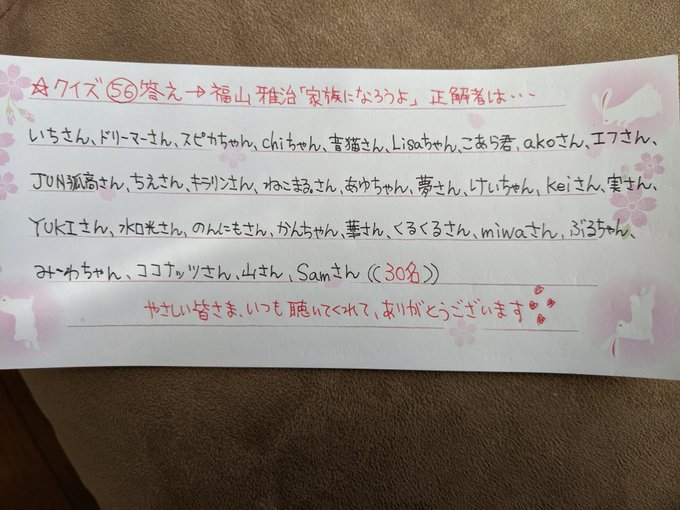 ☆クイズ56答え→福山雅治「家族になろうよ」正解者は・・・
いちさん、ドリーマーさん、スピカちゃん、chiちゃん、音猫さん、Lisaちゃん、こあら君、akoさん、エフさん、
JUN孤高さん、ちえさん、キラリンさん、ねこまる。さん、あゆちゃん、夢さん、けいちゃん、Keiさん、実さん、
YUKIさん、水口光さん、のんにもさん、かんちゃん、華さん、くるくるさん、miwaさん、ぶるちゃん、
みーわちゃん、ココナッツさん、山さん、Samさん((30名))
やさしい皆さま、いつも聴いてくれて、ありがとうございます